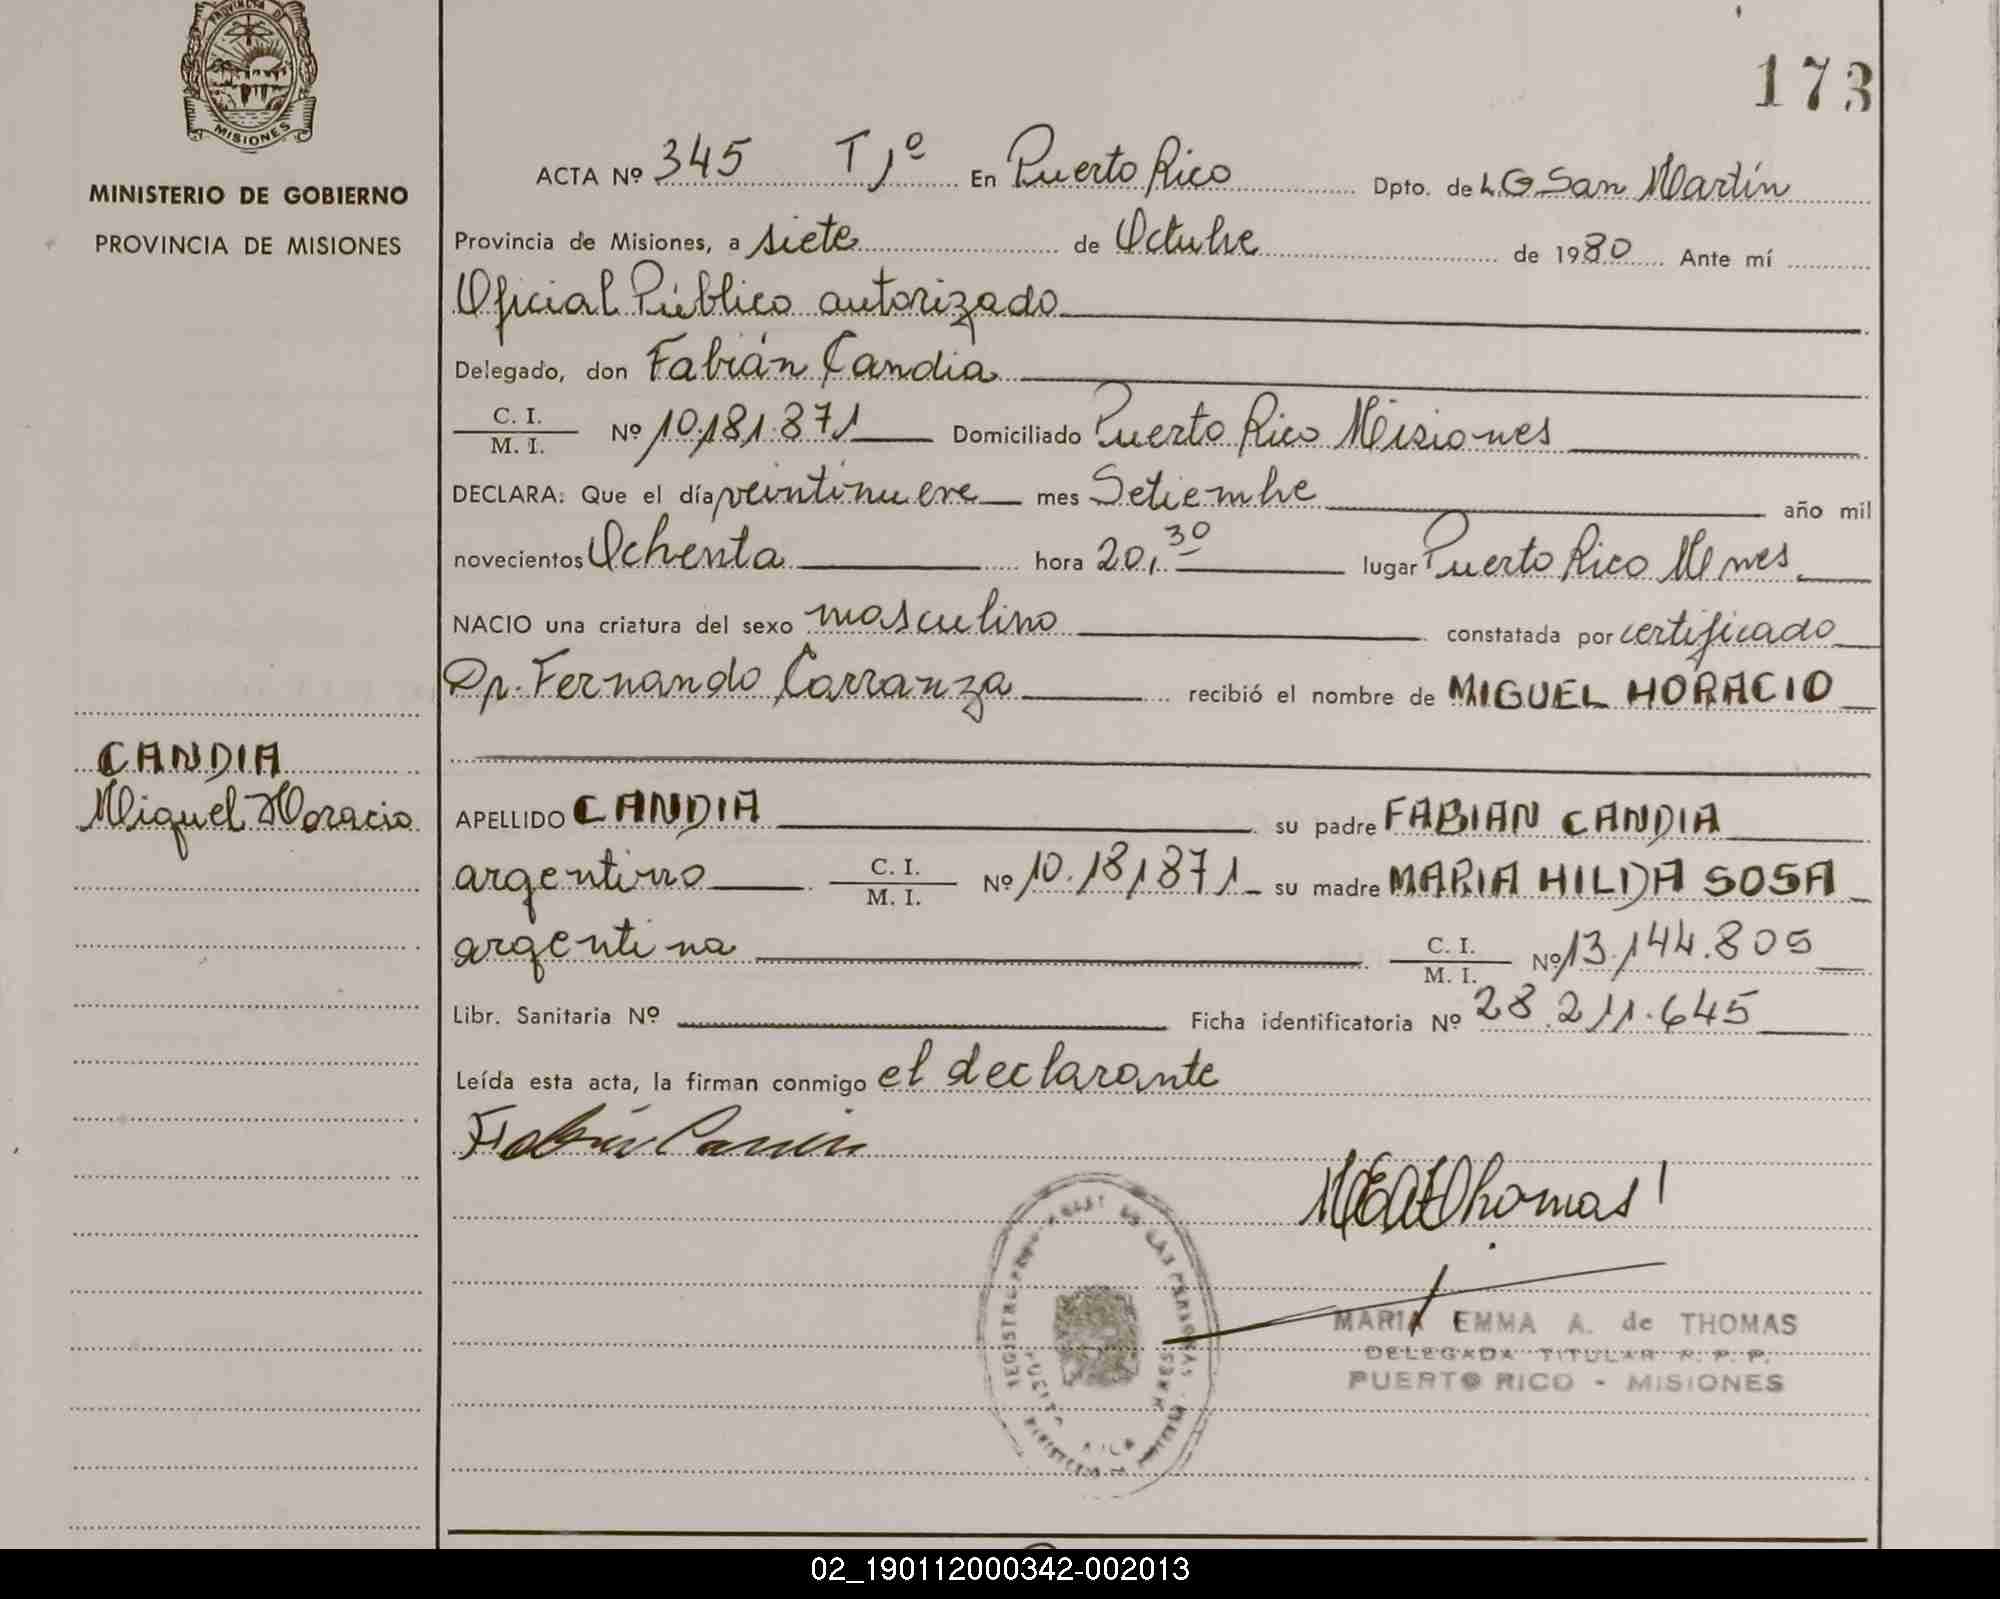 PROVINCIA DE
MISIONES
MINISTERIO DE GOBIERNO
PROVINCIA DE MISIONES
CANDIA
Miguel Horacio
173
ACTA Nº 345 T 1º En Puerto Rico Dpto. de L.G. San Martín
Provincia de Misiones, a siete de Octubre de 1980 Ante mí
Oficial Público autorizado
Delegado, don Fabián Candia
C. I.
M. I. Nº 10.181.871 Domiciliado Puerto Rico Misiones
DECLARA: Que el día veintinueve mes Setiembre año mil
novecientos Ochenta hora 20,30 lugar Puerto Rico Mnes
NACIO una criatura del sexo masculino constatada por certificado
Dr. Fernando Carranza recibió el nombre de MIGUEL HORACIO
APELLIDO CANDIA su padre FABIAN CANDIA
argentino C. I.
M. I. Nº 10.181871 su madre MARIA HILDA SOSA
argentina C. I.
M. I. Nº 13.144.805
Libr. Sanitaria Nº Ficha identificatoria Nº 28.211.645
Leída esta acta, la firman conmigo el declarante
Fabián Candia
MEAdThomas
MARIA EMMA A. de THOMAS
DELEGADA TITULAR R. P. P.
PUERTO RICO - MISIONES
02_190112000342-002013